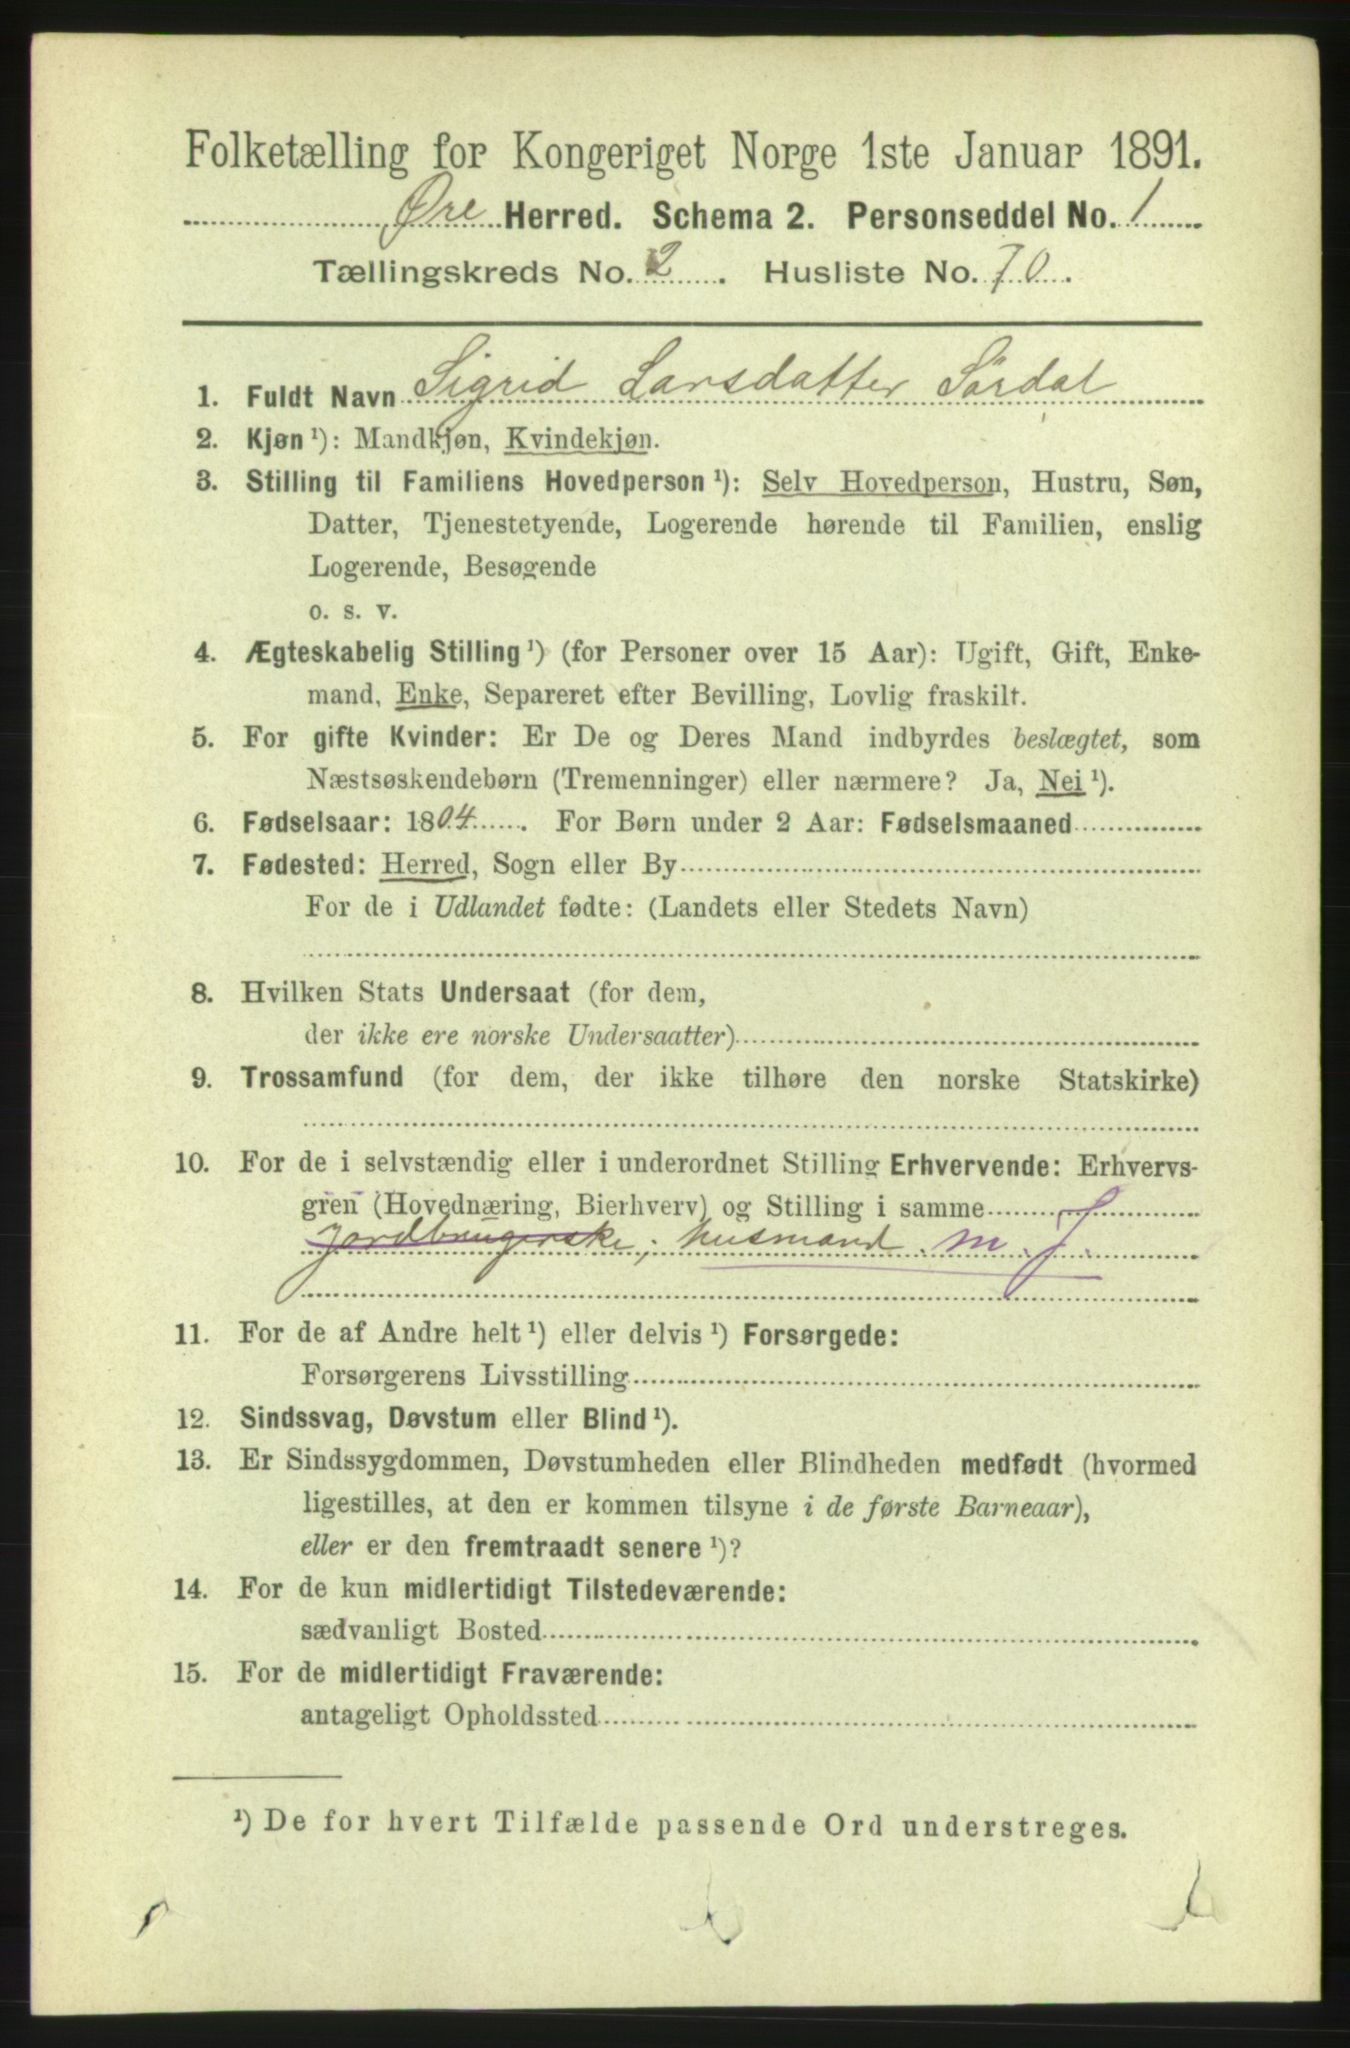 Folketælling for Kongeriget Norge 1ste Januar 1891.
Øre Herred. Schema 2. Personseddel No. 1
Tællingskreds No. 2. Husliste No. 70.
1. Fuldt Navn Sigrid Larsdatter Sördal
2. Kjøn¹): Mandkjøn, Kvindekjøn.
3. Stilling til Familiens Hovedperson¹): Selv Hovedperson, Hustru, Søn,
Datter, Tjenestetyende, Logerende hørende til Familien, enslig
Logerende, Besøgende
o. s. v.
4. Ægteskabelig Stilling¹) (for Personer over 15 Aar): Ugift, Gift, Enke-
mand, Enke, Separeret efter Bevilling, Lovlig fraskilt.
5. For gifte Kvinder: Er De og Deres Mand indbyrdes beslægtet, som
Næstsøskendebørn (Tremenninger) eller nærmere? Ja, Nei¹).
6. Fødselsaar: 1804. For Børn under 2 Aar: Fødselsmaaned
7. Fødested: Herred, Sogn eller By
For de i Udlandet fødte: (Landets eller Stedets Navn)
8. Hvilken Stats Undersaat (for dem,
der ikke ere norske Undersaatter)
9. Trossamfund (for dem, der ikke tilhøre den norske Statskirke)
10. For de i selvstændig eller i underordnet Stilling Erhvervende: Erhvervs-
gren (Hovednæring, Bierhverv) og Stilling i samme
Jordbrugerske, husmand. m. J.
11. For de af Andre helt¹) eller delvis¹) Forsørgede:
Forsørgerens Livsstilling
12. Sindssvag, Døvstum eller Blind¹).
13. Er Sindssygdommen, Døvstumheden eller Blindheden medfødt (hvormed
ligestilles, at den er kommen tilsyne i de første Barneaar),
eller er den fremtraadt senere¹)?
14. For de kun midlertidigt Tilstedeværende:
sædvanligt Bosted
15. For de midlertidigt Fraværende:
antageligt Opholdssted
¹) De for hvert Tilfælde passende Ord understreges.